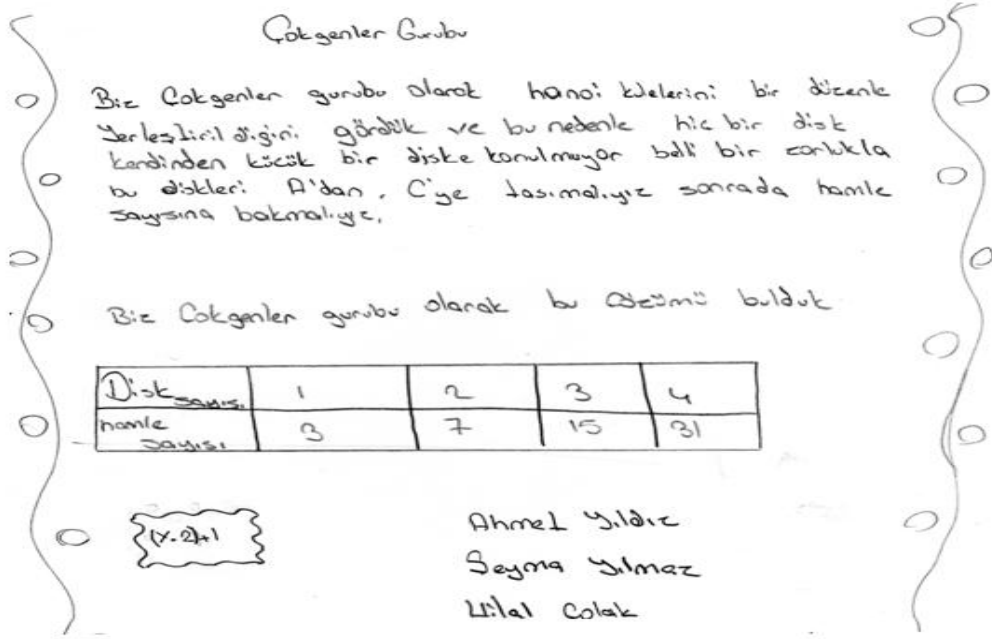 Çokgenler Gurubu
Biz Çokgenler gurubu olarak hanoi kulelerini bir düzenle
Yerleştirildiğini gördük ve bu nedenle hiç bir disk
kendinden küçük bir diske konulmuyor belli bir zorlukla
bu diskleri A'dan, C'ye taşımalıyız sonrada hamle
sayısına bakmalıyız.
Biz Çokgenler gurubu olarak bu çözümü bulduk
Disk sayısı 1 2 3 4
hamle sayısı 3 7 15 31
(x.2)+1
Ahmet Yıldız
Şeyma Yılmaz
Hilal Çolak